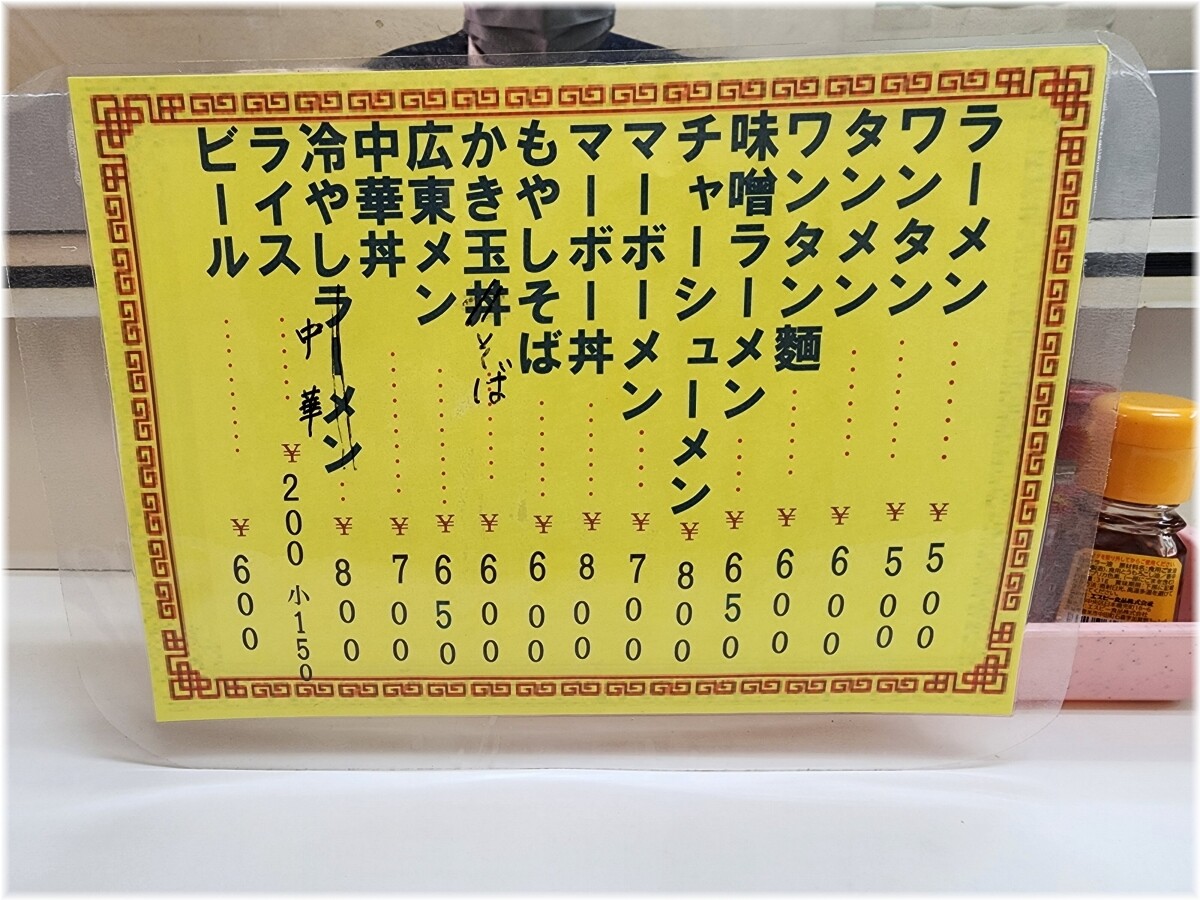 ラーメン ¥500
ワンタン ¥500
タンメン ¥600
ワンタン麺 ¥600
味噌ラーメン ¥650
チャーシューメン ¥800
マーボーメン ¥700
マーボー丼 ¥800
もやしそば ¥600
かき玉丼そば ¥600
広東メン ¥650
中華丼 ¥700
冷やしラーメン中華 ¥800
ライス ¥200 小150
ビール ¥600